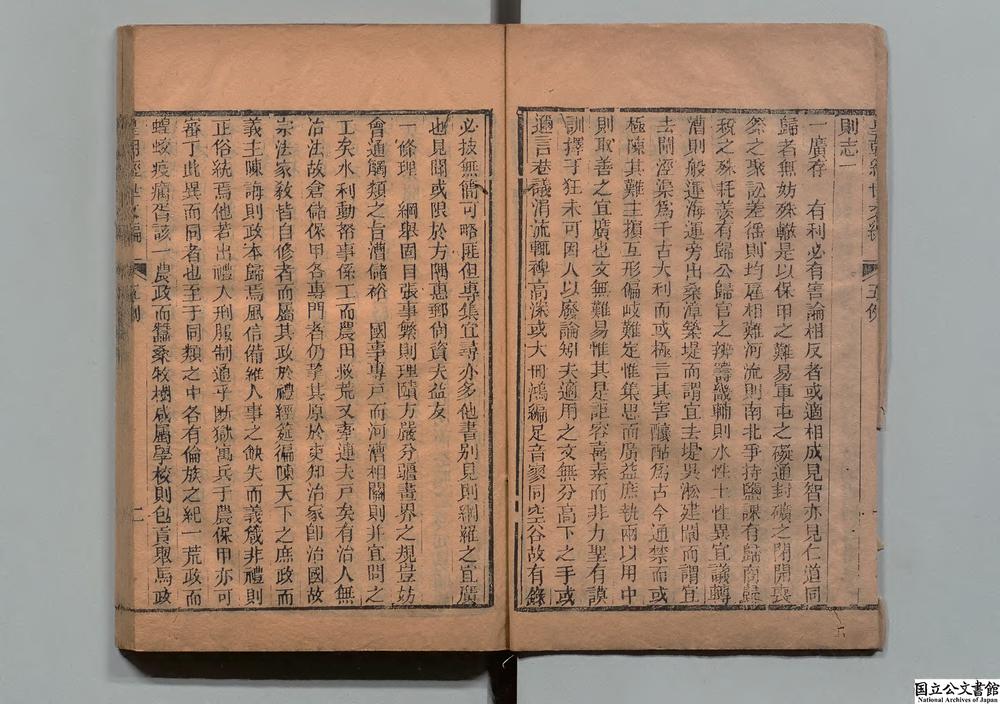 則志一
一廣存　有利必有害論相反者或適相成見智亦見仁道同
歸者無妨殊轍是以保甲之難易軍屯之礙通封礦之閉開喪
祭之聚訟差徭則均雇相難河流則南北爭持鹽課有歸商歸
稅之殊耗羨有歸公歸官之辨籌畿輔則水性土性異宜議轉
漕則般運海運旁出桑漳築堤而謂宜去堤吳淞建閘而謂宜
去閘涇渠爲千古大利而或極言其害釀酤爲古今通禁而或
極陳其難主損互形偏岐難定惟集思而廣益庶執兩以用中
則取善之宜廣也文無難易惟其是詎容喜素而非力聖有謨
訓擇于狂未可因人以廢論矧夫適用之文無分高下之手或
邇言巷議涓流輒裨高深或大冊鴻編足音寥同空谷故有錄
必披無簡可略匪但專集宜尋亦多他書別見則網羅之宜廣
也見聞或限於方隅惠郵尙資夫益友
一條理　綱舉固目張事繁則理賾方嚴分疆畫界之規豈妨
會通觸類之旨漕儲裕　國事專戶而河漕相關則并宜問之
工矣水利動帑事係工而農田救荒又牽連夫戶矣有治人無
冶法故倉儲保甲各專門者仍挈其原於吏知治家卽治國故
宗法家敎皆自修者而屬其政於禮經筵徧陳天下之庶政而
義主陳誨則政本歸焉風信備維人事之缺失而義箴非禮則
正俗統焉他若出禮入刑服制通乎斷獄寓兵于農保甲亦可
審丁此異而同者也至于同類之中各有倫族之紀一荒政而
蝗蛟疫癘胥該一農政而蠶桑牧樹咸屬學校則包貢舉馬政
皇朝經世文編
五例
二
国立公文書館
National Archives of Japan